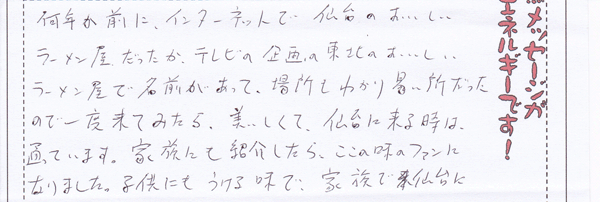 何年か前に、インターネットで仙台のおいしい
ラーメン屋だったか、テレビの企画の東北のおいしい
ラーメン屋で名前があって、場所もわかり易い所だった
ので一度来てみたら、美しくて、仙台に来る時は、
通っています。家族にも紹介したら、ここの味のファンに
なりました。子供にもうける味で、家族で仙台に
メッセージが
エネルギーです！